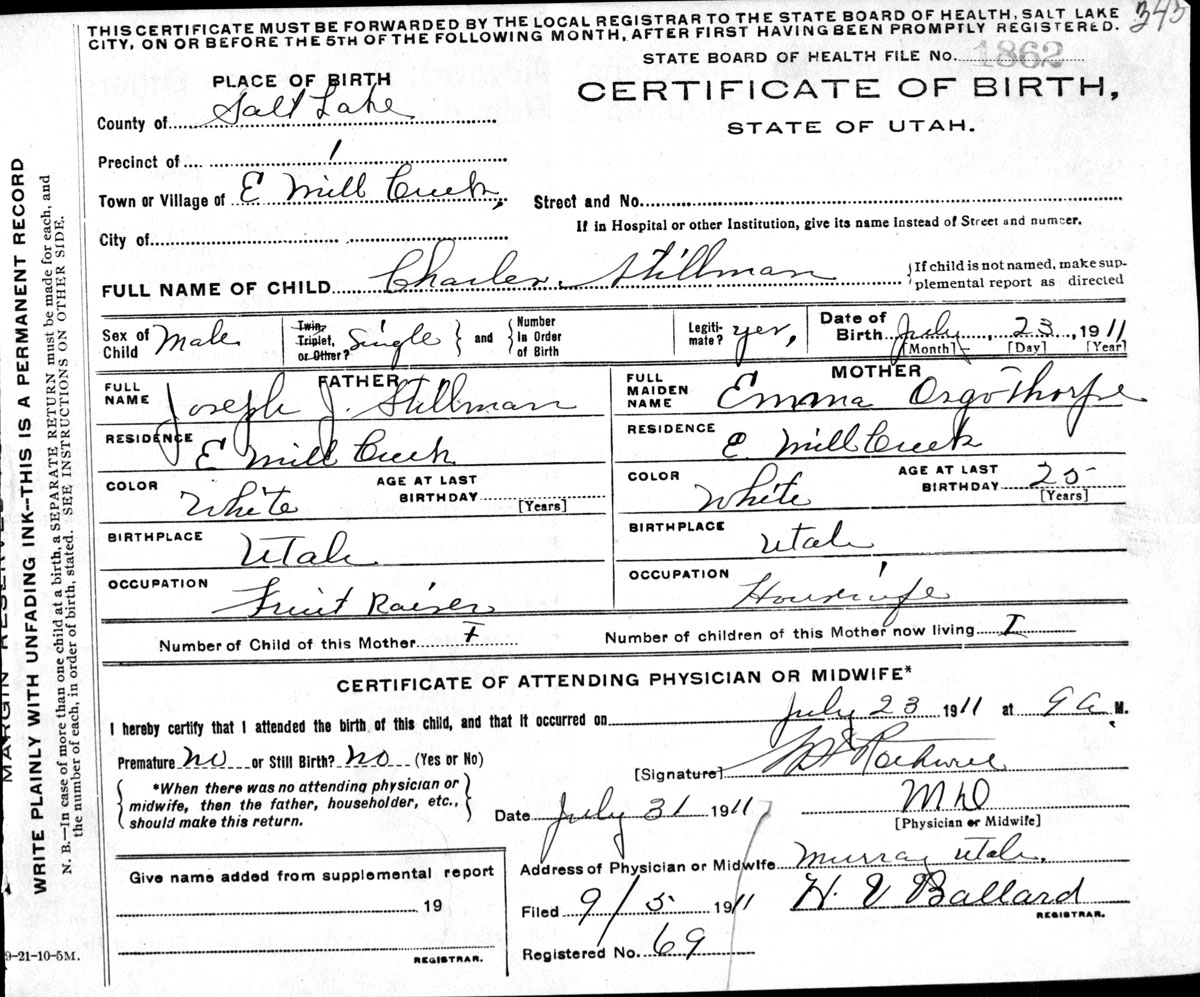 343
THIS CERTIFICATE MUST BE FORWARDED BY THE LOCAL REGISTRAR TO THE STATE BOARD OF HEALTH, SALT LAKE
CITY, ON OR BEFORE THE 5TH OF THE FOLLOWING MONTH, AFTER FIRST HAVING BEEN PROMPTLY REGISTERED.
STATE BOARD OF HEALTH FILE No. 1862
PLACE OF BIRTH
CERTIFICATE OF BIRTH,
STATE OF UTAH.
County of Salt Lake
Precinct of 1
Town or Village of E Mill Creek,
Street and No.
If in Hospital or other Institution, give its name instead of Street and number.
City of
FULL NAME OF CHILD Charles Stillman
If child is not named, make sup-
plemental report as directed
Sex of Child Male
Twin, Triplet, or Other? Single and Number In Order of Birth
Legiti-mate? yes,
Date of Birth July 23, 1911
[Month] [Day] [Year]
FATHER
FULL NAME Joseph J. Stillman
MOTHER
FULL MAIDEN NAME Emma OsgoThorpe
RESIDENCE E Mill Creek
RESIDENCE E. Mill Creek
COLOR White AGE AT LAST BIRTHDAY [Years]
COLOR White AGE AT LAST BIRTHDAY 25 [Years]
BIRTHPLACE Utah
BIRTHPLACE Utah
OCCUPATION Fruit Raiser
OCCUPATION Housewife
Number of Child of this Mother I
Number of children of this Mother now living I
CERTIFICATE OF ATTENDING PHYSICIAN OR MIDWIFE*
I hereby certify that I attended the birth of this child, and that it occurred on July 23 1911 at 9 a M.
Premature no or Still Birth? no (Yes or No)
[Signature]
*When there was no attending physician or
midwife, then the father, householder, etc.,
should make this return.
Date July 31 1911
M D
[Physician or Midwife]
Address of Physician or Midwife Murray Utah.
Give name added from supplemental report
19
REGISTRAR.
Filed 9/5 1911 H. V Ballard
REGISTRAR.
Registered No. 69
9-21-10-5M.
MARGIN RESERVED
WRITE PLAINLY WITH UNFADING INK--THIS IS A PERMANENT RECORD
N. B.—In case of more than one child at a birth, a SEPARATE RETURN must be made for each, and
the number of each, in order of birth, stated. SEE INSTRUCTIONS ON OTHER SIDE.